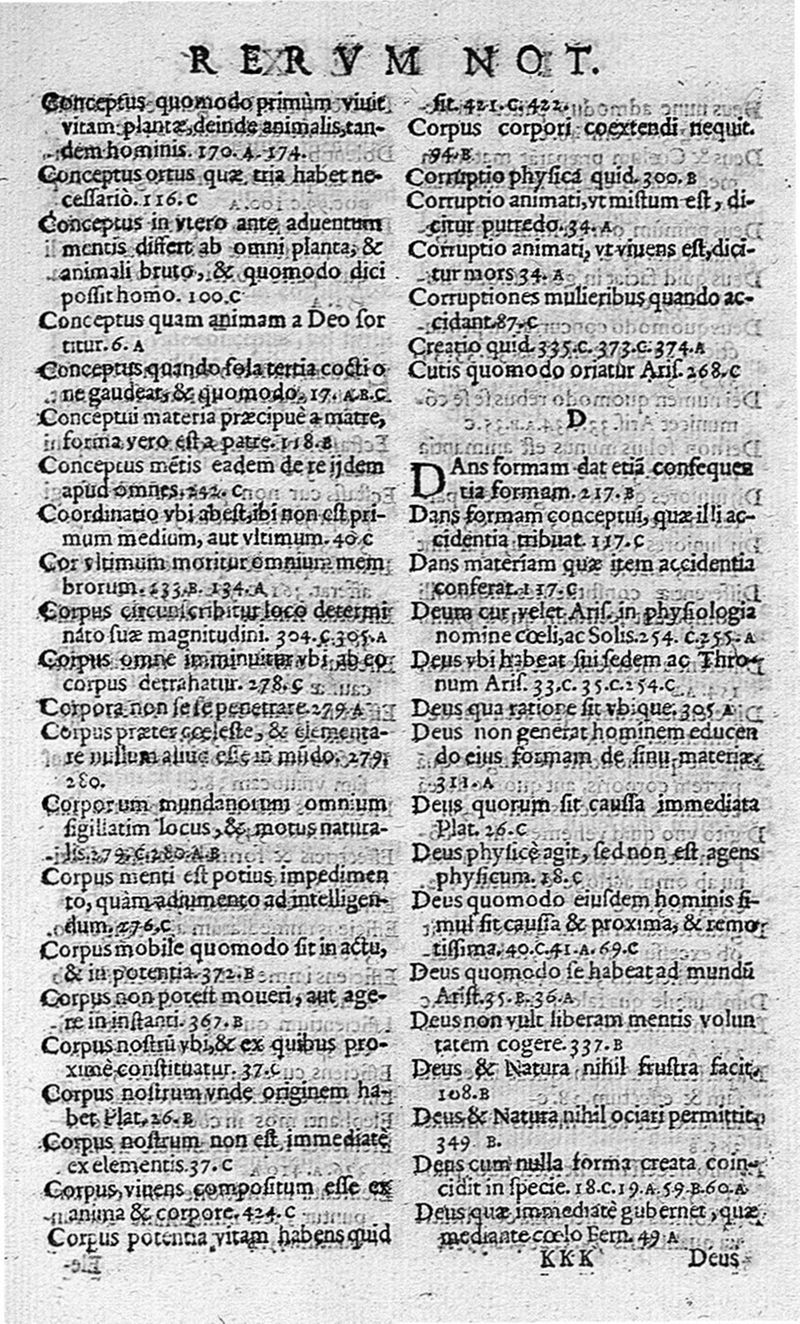 RERVM NOT.
Conceptus quomodo primùm viuit
vitam plantæ, deinde animalis, tan-
dem hominis. 170. A. 174.
Conceptus ortus quæ tria habet ne-
ceſſariò. 116. C
Conceptus in vtero ante aduentum
mentis differt ab omni planta, &
animali bruto, & quomodo dici
poſſit homo. 100. C
Conceptus quam animam a Deo ſor
titur. 6. A
Conceptus quando ſola tertia cocti o
ne gaudeat, & quomodo. 17. A. B. C.
Conceptui materia præcipuè a matre,
forma vero eſt a patre. 118. B
Conceptus mẽtis eadem de re ijdem
apud omnes. 242. C
Coordinatio vbi abeſt, ibi non eſt pri-
mum medium, aut vltimum. 40. C
Cor vltimum moritur omnium mem
brorum. 133. B. 134. A
Corpus circunſcribitur loco determi
nato ſuæ magnitudini. 304. C. 305. A
Corpus omne imminuitur vbi ab eo
corpus detrahatur. 278. C
Corpora non ſe ſe penetrare. 279. A
Corpus præter cœleſte, & elementa-
re nullum aliud eſſe in mũdo. 279,
280.
Corporum mundanorum omnium
ſigillatim locus, & motus natura-
lis. 279. C. 280. A. B
Corpus menti eſt potius impedimen
to, quàm adiumento ad intelligen-
dum. 276. C
Corpus mobile quomodo ſit in actu,
& in potentia. 372. B
Corpus non poteſt moueri, aut age-
re in inſtanti. 367. B
Corpus noſtrũ vbi, & ex quibus pro-
ximè conſtituatur. 37. C
Corpus noſtrum vnde originem ha-
bet Plat. 26. B
Corpus noſtrum non eſt immediatè
ex elementis. 37. C
Corpus, viuens compoſitum eſſe ex
anima & corpore. 424. C
Corpus potentia vitam habens quid
ſit. 421. C. 422.
Corpus corpori coextendi nequit.
94. B
Corruptio phyſica quid. 300. B
Corruptio animati, vt miſtum eſt, di-
citur putredo. 34. A
Corruptio animati, vt viuens eſt, dici-
tur mors 34. A
Corruptiones mulieribus quando ac-
cidant. 87. C
Creatio quid. 335. C. 373. C. 374. A
Cutis quomodo oriatur Ariſ. 268. C
D
DAns formam dat etiã conſequen
tia formam. 217. B
Dans formam conceptui, quæ illi ac-
cidentia tribuat. 117. C
Dans materiam quæ item accidentia
conferat. 117. C
Deum cur velet Ariſ. in phyſiologia
nomine cœli, ac Solis. 254. C. 255. A
Deus vbi habeat ſui ſedem ac Thro-
num Ariſ. 33. C. 35. C. 254. C
Deus qua ratione ſit vbique. 305. A
Deus non generat hominem educen
do eius formam de ſinu materiæ.
311. A
Deus quorum ſit cauſſa immediata
Plat. 26. C
Deus phyſicè agit, ſed non eſt agens
phyſicum. 18. C
Deus quomodo eiuſdem hominis ſi-
mul ſit cauſſa & proxima, & remo
tiſſima. 40. C. 41. A. 69. C
Deus quomodo ſe habeat ad mundũ
Ariſt. 35. B. 36. A
Deus non vult liberam mentis volun
tatem cogere. 337. B
Deus & Natura nihil fruſtra facit.
108. B
Deus & Natura nihil ociari permittit.
349 B.
Deus cum nulla forma creata coin-
cidit in ſpecie. 18. C. 19. A. 59. B. 60. A
Deus quæ immediatè gubernet, quæ
mediante cœlo Fern. 49 A
KKK Deus